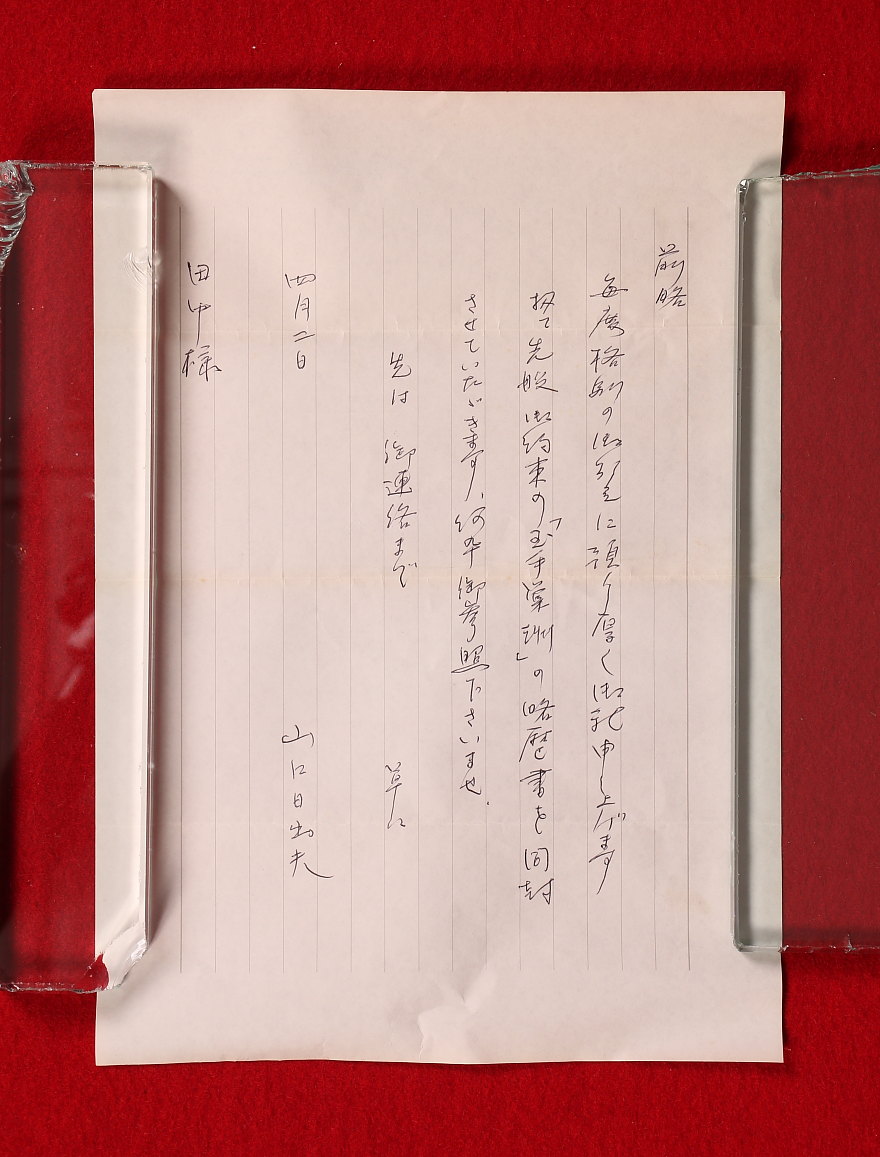 前略
毎度格別の御引立に預り厚く御礼申し上げます
扨て先般御約束の「玉手巣洲」の略歴書を同封
させていただきます、何卒御参照下さいませ、
先は 御連絡まで
草々
四月二日
山口日出夫
田中様